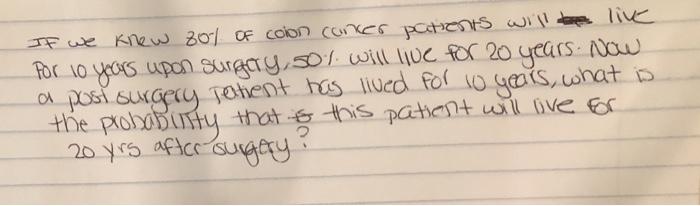 IF we knew 80% OF colon cancer patients will live
for 10 years upon surgery, 50% will live for 20 years. Now
a post surgery patient has lived for 10 years, what is
the probability that this patient will live for
20 yrs after surgery?